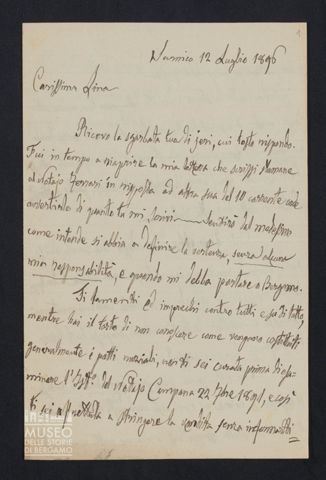 1
Sarnico 12 Luglio 1896
Carissima Lina
Ricevo la sgarbata tua di jeri, cui tosto rispondo.
Fui in tempo a riaprire la mia lettera che scrissi stamane
al Notajo Ferrari in risposta ad altra sua del 10 corrente onde
avvertirlo di quanto tu mi scrivi Sentirò dal medesimo
come intende si abbia a definire la vertenza, senza alcuna
mia responsabilità, e quando mi debba portare a Bergamo.
Ti lamenti ed imprechi contro tutti e su di tutto,
mentre hai il torto di non conoscere come vengono costituiti
generalmente i patti nuziali, non ti sei curata prima di esa-
minare l' del Notajo Campana 22 1891, e così
ti sei affrettata a stringere la vendita senza informarti
MUSEO
DELLE STORIE
DI BERGAMO